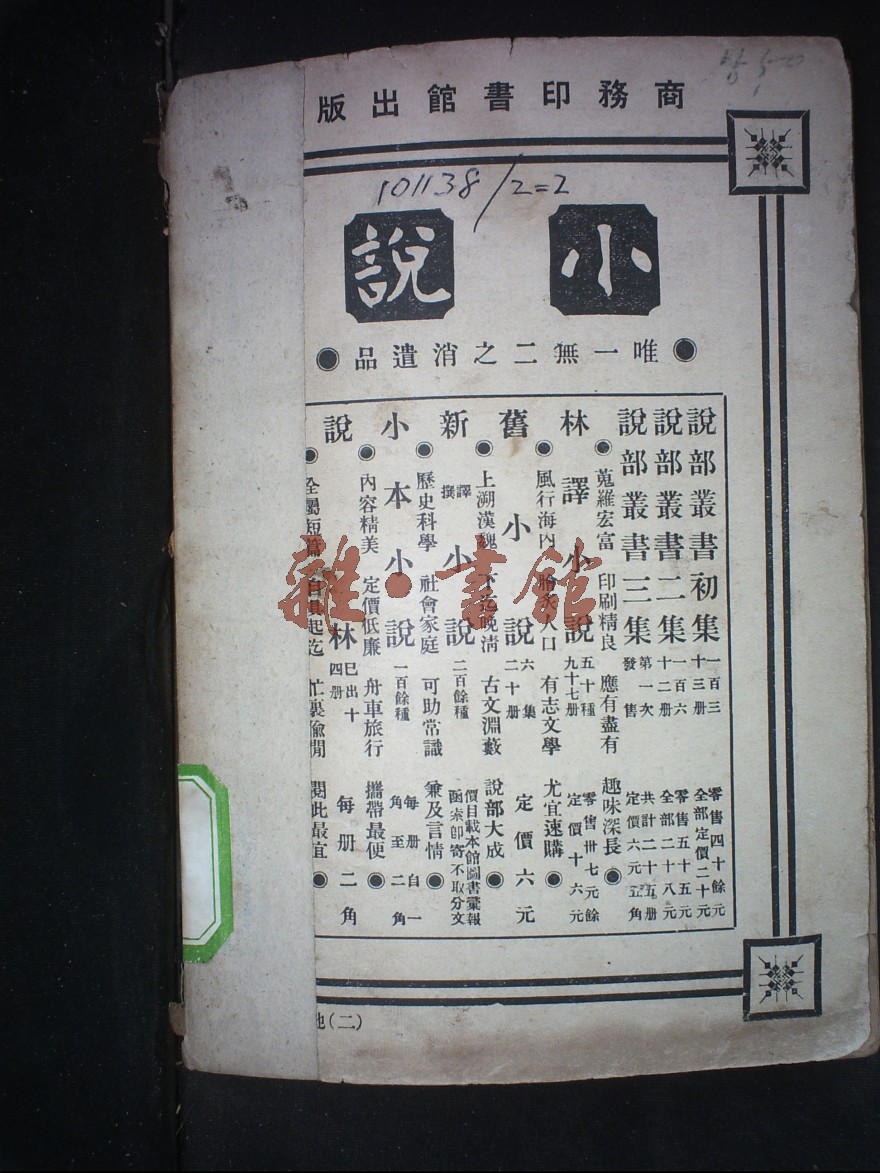 商務印書館出版
101138/2=2
小說
●唯一無二之消遣品●
說部叢書初集 一百三十三册 零售四十餘元 全部定價二十元
說部叢書二集 一百六十二册 零售五十五元 全部二十八元
說部叢書三集 第一次發售 共計二十五册 定價六元五角
●蒐羅宏富 印刷精良 應有盡有 趣味深長●
林譯小說 五十種九十七册 零售卅七元餘 定價十六元
●風行海內 膾炙人口 有志文學 尤宜速購●
舊小說 六集二十册 定價六元
●上溯漢魏 下迄晚清 古文淵藪 說部大成●
新譯撰小說 二百餘種 價目載本館圖書彙報 函索即寄不取分文
●歷史科學 社會家庭 可助常識 兼及言情●
小本小說 一百餘種 每册自一角至二角
●內容精美 定價低廉 舟車旅行 攜帶最便●
說林 已出十四册 每册二角
●全屬短篇 自具起迄 忙裏偷閒 閱此最宜●
(二)
雜·書館